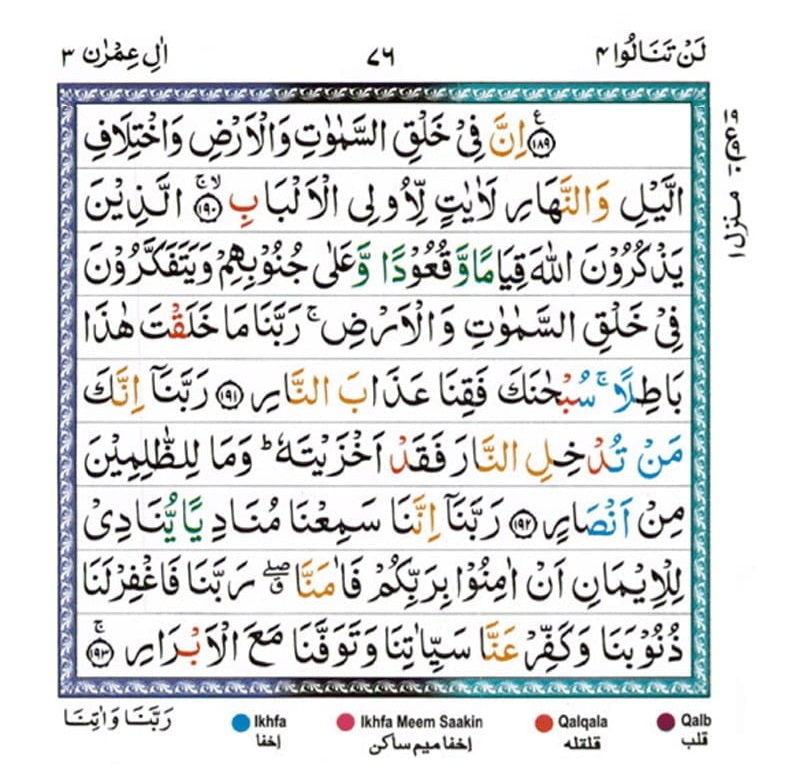 لَنْ تَنَالُوا ۴ ۷۶ اٰلِ عِمْرٰن ۳
﴿۱۸۹﴾ ع اِنَّ فِیْ خَلْقِ السَّمٰوٰتِ وَالْاَرْضِ وَاخْتِلَافِ
الَّیْلِ وَالنَّهَارِ لَاٰیٰتٍ لِّاُولِی الْاَلْبَابِ ﴿۱۹۰﴾ ۚۙ الَّذِیْنَ
یَذْكُرُوْنَ اللّٰهَ قِیَامًا وَّقُعُوْدًا وَّعَلٰی جُنُوْبِهِمْ وَیَتَفَكَّرُوْنَ
فِیْ خَلْقِ السَّمٰوٰتِ وَالْاَرْضِ ۚ رَبَّنَا مَا خَلَقْتَ هٰذَا
بَاطِلًا ۚ سُبْحٰنَكَ فَقِنَا عَذَابَ النَّارِ ﴿۱۹۱﴾ رَبَّنَاۤ اِنَّكَ
مَنْ تُدْخِلِ النَّارَ فَقَدْ اَخْزَیْتَهٗ ؕ وَمَا لِلظّٰلِمِیْنَ
مِنْ اَنْصَارٍ ﴿۱۹۲﴾ رَبَّنَاۤ اِنَّنَا سَمِعْنَا مُنَادِیًا یُّنَادِیْ
لِلْاِیْمَانِ اَنْ اٰمِنُوْا بِرَبِّكُمْ فَاٰمَنَّا ۖق رَبَّنَا فَاغْفِرْلَنَا
ذُنُوْبَنَا وَكَفِّرْ عَنَّا سَیِّاٰتِنَا وَتَوَفَّنَا مَعَ الْاَبْرَارِ ﴿۱۹۳﴾ ۚ
منزل ۱
رَبَّنَا وَاٰتِنَا
Ikhfa Ikhfa Meem Saakin Qalqala Qalb
إخفا إخفا ميم ساكن قلقله قلب